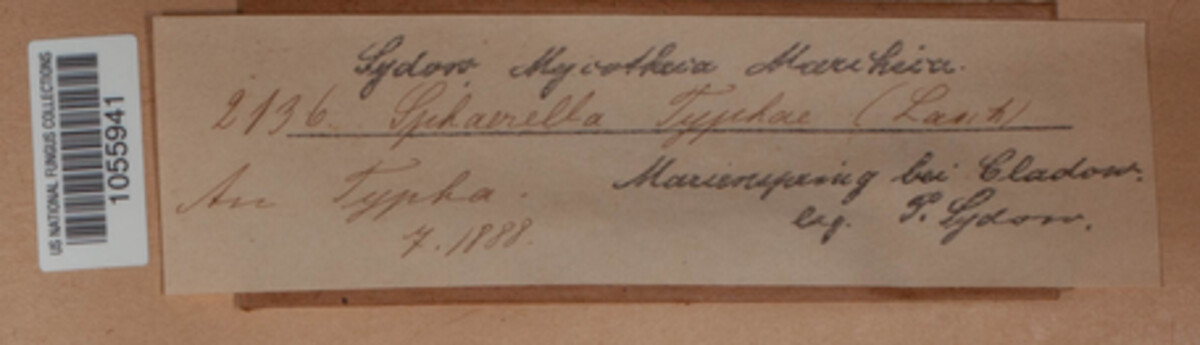 US NATIONAL FUNGUS COLLECTIONS
1055941
Sydow, Mycotheca Marchica.
2136. Sphaerella Typhae (Lasch)
An Typha.
7.1888.
Marienspring bei Cladow.
leg. P. Sydow.